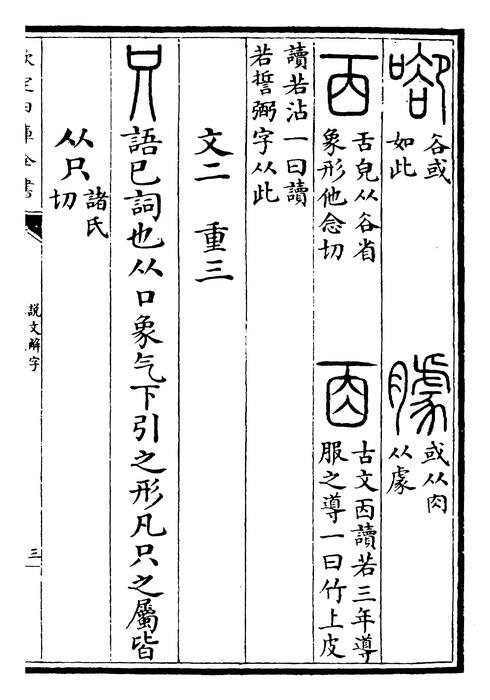 谷或
如此
臄
或从肉
从豦
㐁
舌皃从谷省
象形他念切
古文㐁讀若三年導
服之導一曰竹上皮
讀若沾一曰讀
若誓弼字从此
文二　重三
只語已詞也从口象气下引之形凡只之屬皆
从只
諸氏
切
欽定四庫全書
說文解字
三